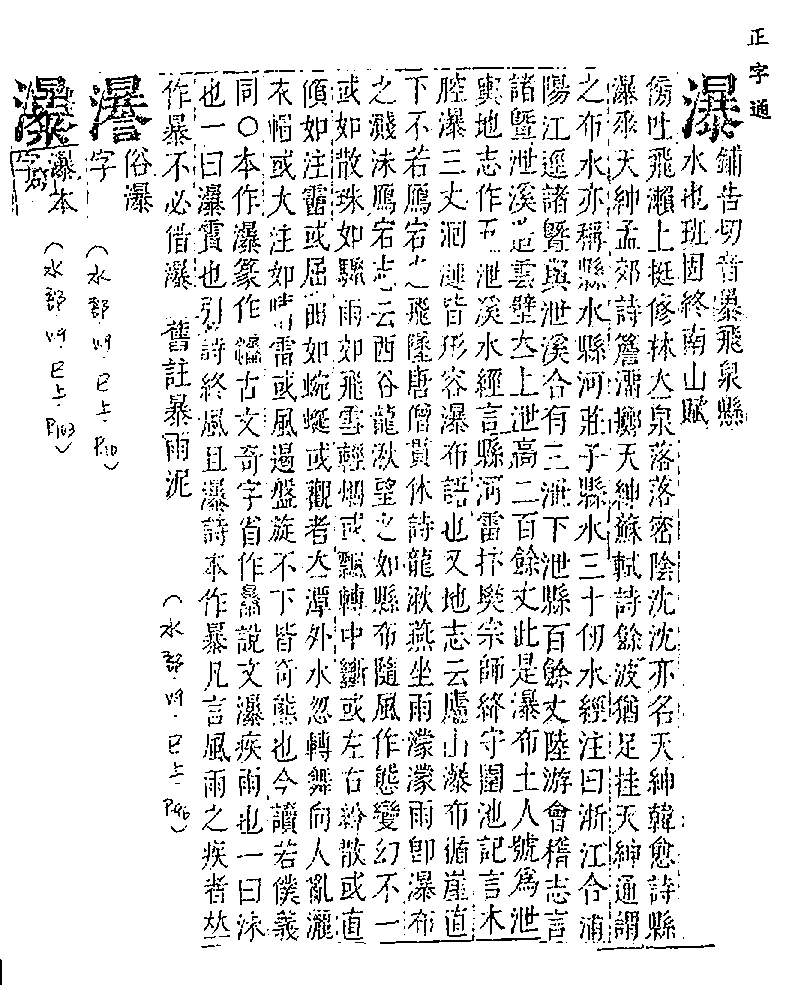 正字通
瀑
鋪告切音暴飛泉縣
水也班固終南山賦
傍吐飛瀨上挺修林厺泉落落密陰沈沈亦名天紳韓愈詩縣
瀑垂天紳孟郊詩簷瀑擲天紳蘇軾詩餘波猶足挂天紳通謂
之布水亦稱縣水縣河莊子縣水三十仞水經注曰浙江合浦
陽江逕諸暨與泄溪合有三泄下泄縣百餘丈陸游會稽志言
諸暨泄溪造雲壁厺上泄高二百餘丈此是瀑布土人號爲泄
輿地志作五泄溪水經言縣河雷抃樊宗師絳守園池記言木
腔瀑三丈洞漣皆形容瀑布語也又地志云廬山瀑布循崖直
下不若鴈宕之飛墜唐僧貫休詩龍湫燕坐雨濛濛雨卽瀑布
之濺沫鴈宕志云西谷龍湫望之如縣布隨風作態變幻不一
或如散珠如驟雨如飛雪輕烟或飄轉中斷或左右紛散或直
傾如注霤或屈曲如蜿蜒或觀者厺潭外水忽轉舞向人亂灑
衣幅或大注如晴雷或風過盤旋不下皆奇態也今讀若僕義
同〇本作瀑篆作 古文奇字省作 說文瀑疾雨也一曰沫
也一曰瀑霣也引詩終風且瀑詩本作暴凡言風雨之疾者厺
作暴不必借瀑 舊註暴雨泥
(水部 四 巳上 P96)
俗瀑
字
(水部 四 巳上 P10)
瀑本
字
(水部 四 巳上 P103)